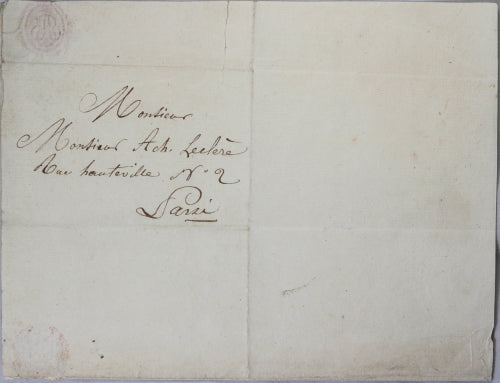 Monsieur
Monsieur Ach. Leclère
Rue hauteville N° 2
Paris